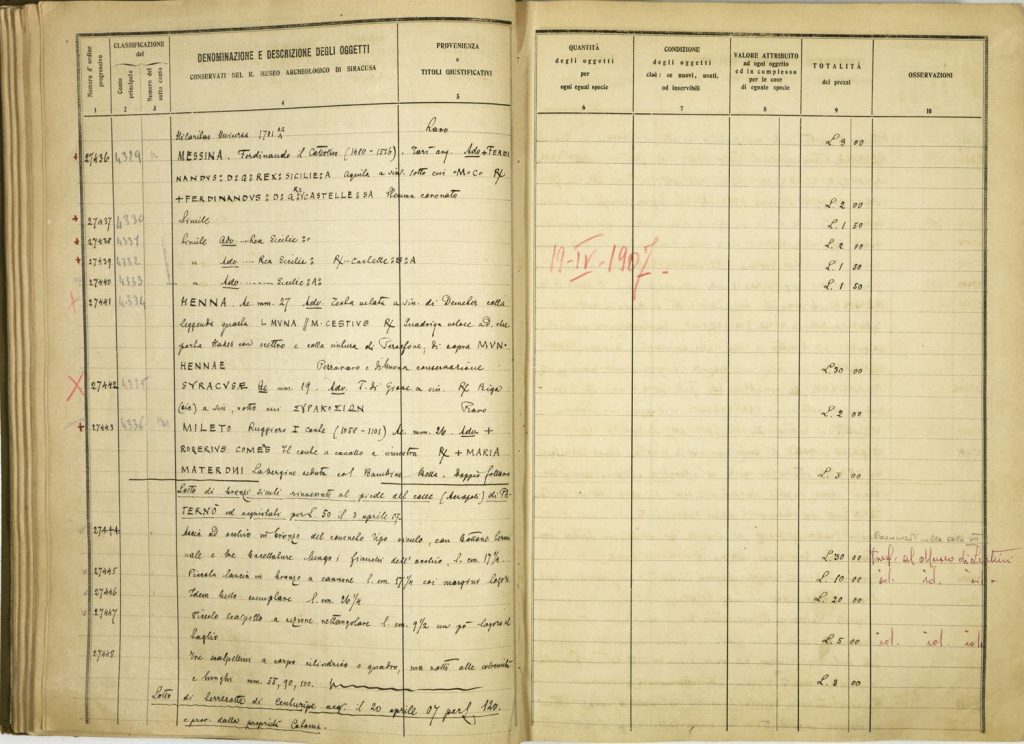 Numero d'ordine progressivo
CLASSIFICAZIONE del
Conto principale
Numero del sotto conto
DENOMINAZIONE E DESCRIZIONE DEGLI OGGETTI
CONSERVATI NEL R. MUSEO ARCHEOLOGICO DI SIRACUSA
PROVENIENZA
e
TITOLI GIUSTIFICATIVI
1 2 3 4 5
QUANTITÀ
degli oggetti
per
ogni egual specie
CONDIZIONE
degli oggetti
cioè: se nuovi, usati,
od inservibili
VALORE ATTRIBUITO
ad ogni oggetto
ed in complesso
per le cose
di eguale specie
TOTALITÀ
dei prezzi
OSSERVAZIONI
6 7 8 9 10
Hilaritas Universa 1701 Raro L. 3 00
27436 4329 MESSINA. Ferdinando il Cattolico Tarì arg. Adv + FERDI
NANDVS : D : G : REX : SICILIE : A Aquila a sin. sotto cui M C R/
+ FERDINANDVS : D : G : R : CASTELLE : SA Stemma coronato L. 2 00
27437 4330 Simile L. 1 50
27438 4331 Simile Adv. ... Rex Sicilie L. 2 00
27439 4332 " Adv ... Rex Sicilie : R/ L. 1 50
27440 4333 " Adv. ... Sicilie : A : L. 1 50
19-IV-1907.
27441 4334 HENNA. Ae. mm. 27 Adv. Testa velata a sin. di Demeter colla
leggenda guasta L. MVNA // M. CESTIVS R/ Quadriga veloce a d. che
porta Hades con scettro e colla di Persefone, di sopra MVN.
HENNAE Perraro e di buona conservazione L. 30 00
27442 4335 SYRACVSÆ Ae mm. 19. Adv. T. di a sin. R/ Biga
(sic) a sin, sotto cui ΣΥΡΑΚΟΣΙΩΝ Raro L. 2 00
27443 4336 MILETO Ruggiero I conte (1058-1101) Ae. mm. 26 Adv +
ROGERIVS COMES Il conte a cavallo a sinistra R/ + MARIA
MATER DNI La Vergine seduta col Bambino. Bella. Doppio follaro L. 3 00
Lotto di bronzi siculi rinvenuti al piede del colle (Acropoli) di PA
TERNÒ ed acquistati per L. 50 il 3 aprile 07.
27444 Ascia ad occhio in bronzo del consueto tipo siculo, con bottone termi
nale e tre baccellature lungo i fianchi dell'occhio. l. cm. 17 ½. L. 30 00 trasf. al Museo di Lentini
27445 Piccola lancia in bronzo a cannone l. cm. coi margini logori L. 10 00 id. id. id.
27446 Idem bello esemplare l. cm. 26 ½ L. 20 00
27447 Piccolo scalpello a sezione rettangolare l. cm. 9 ½ un pò logoro al
taglio L. 5 00 id. id. id.
27448 Tre scalpellini a corpo cilindrico o quadro, ma rotti alle estremità
e lunghi mm. 55, 90, 100. L. 3 00
Lotto di terrecotte di Centuripe acq. il 20 aprile 07 per L. 120.
e prov. dalla proprietà